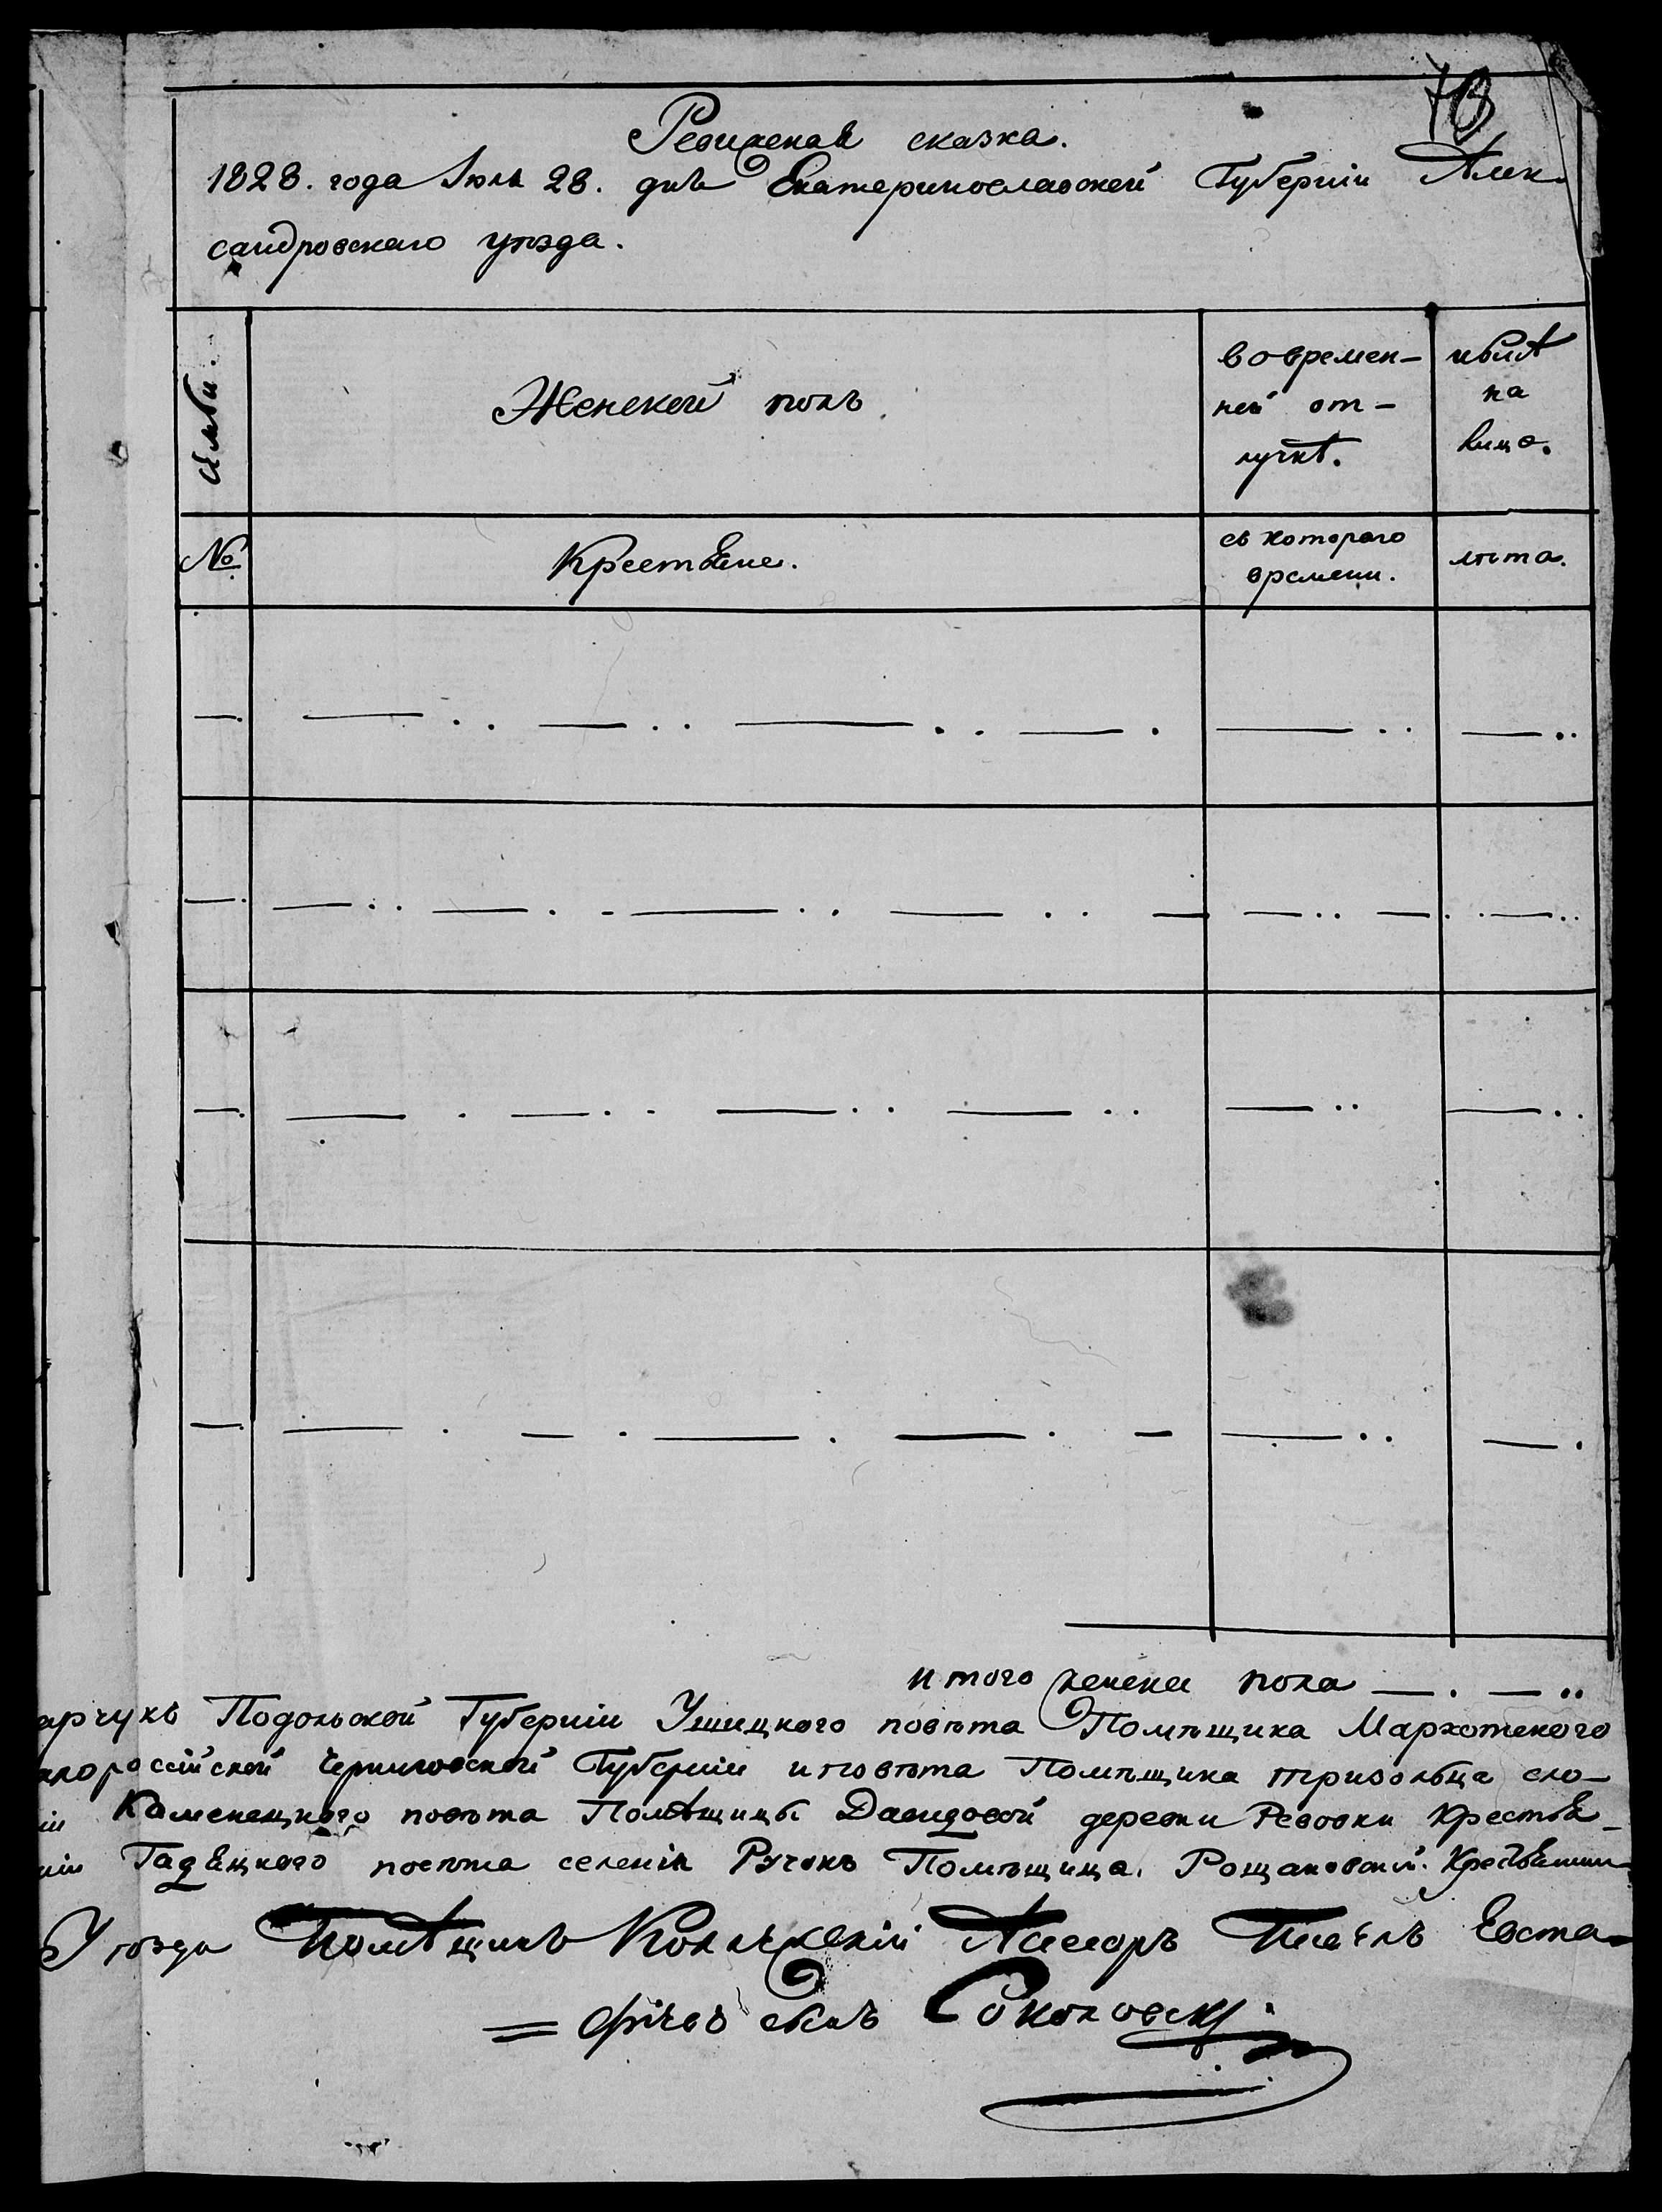 73
Ревижская сказка.
1828. года Июля 28. дня Екатеринославской Губерніи Алек-
сандровскаго уѣзда.
Семьи.
Женской полъ
во времен-
ной от-
лучкѣ.
на
лицо.
№
Крестьяне.
съ котораго
времени.
лѣта.
итого женска пола
арчукъ Подольской Губерніи Ушицкого повѣта Помѣщика Мархотского
алороссійской Черниговской Губерніи и повѣта Помѣщика
іи Каменецкого повѣта Помѣщицы Давидовой деревни Ревовки Крестья-
ніи Гадяцкого повѣта селенія Ручокъ Помѣщица.
Уѣзда Помѣщикъ Коллежскій Асесоръ Павелъ Евста-
=фіевъ сынъ Соколовскі